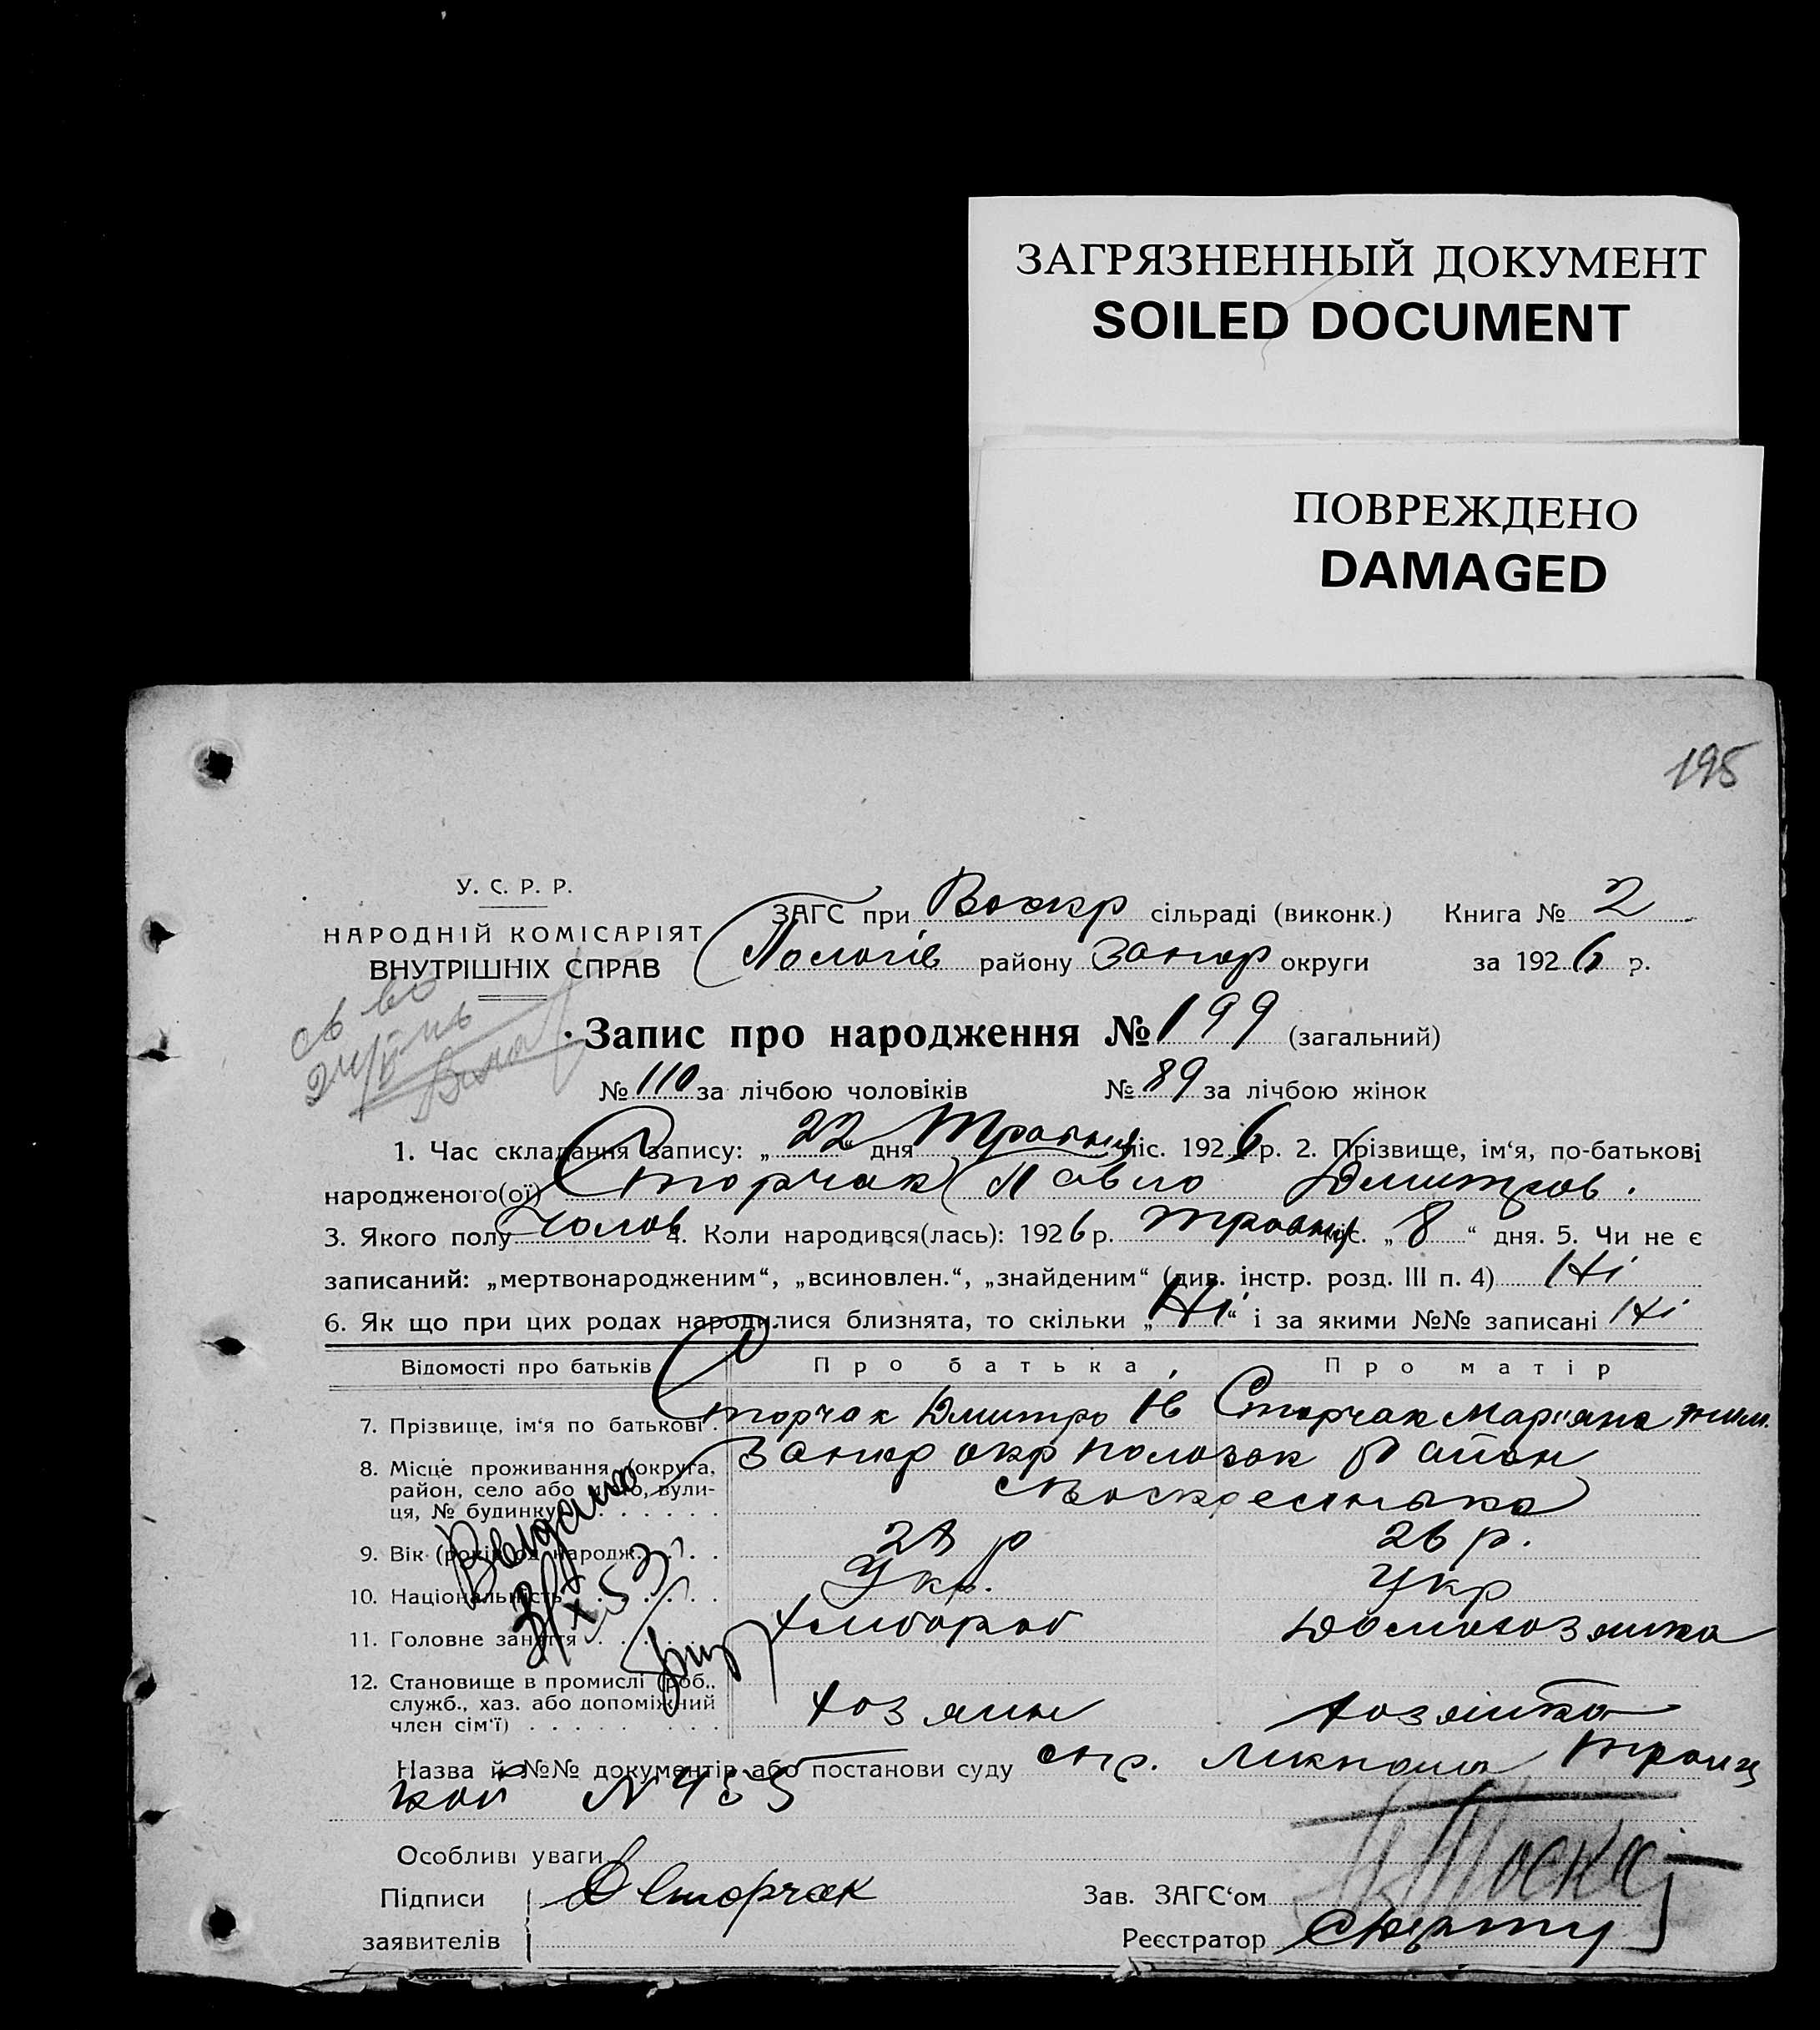 ЗАГРЯЗНЕННЫЙ ДОКУМЕНТ
SOILED DOCUMENT
ПОВРЕЖДЕНО
DAMAGED
195
У. С. Р. Р.
НАРОДНІЙ КОМІСАРІЯТ
ВНУТРІШНІХ СПРАВ
ЗАГС при Воскр сільраді (виконк.) Книга № 2
Пологів району Запор округи за 1926 р.
Запис про народження № 199 (загальний)
№ 110 за лічбою чоловіків № 89 за лічбою жінок
1. Час складання запису: „22“ дня Травня міс. 1926 р. 2. Прізвище, ім‘я, по-батькові
народженого(ої) Сторчак Павло Дмитров.
3. Якого полу Чолов 4. Коли народився(лась): 1926 р. травня міс. „8“ дня. 5. Чи не є
записаний: „мертвонародженим“, „всиновлен.“, „знайденим“ (див. інстр. розд. III п. 4) Ні
6. Як що при цих родах народилися близнята, то скільки „Ні“ і за якими №№ записані Ні
Відомості про батьків Про батька Про матір
7. Прізвище, ім‘я по батькові. Сторчак Дмитро Ів Сторчак Мар‘яна
8. Місце проживання (округа, Запор окр Район
район, село або місто, вули-
ця, № будинку) . . . . . .
9. Вік (років од народж. . . . 28 р 26 р.
10. Національність . . . . . Укр. Укр
11. Головне заняття . . . . Хлібороб Домохозяйка
12. Становище в промислі (роб.,
служб., хаз. або допоміжний
член сім‘ї) . . . . . . . . Хозяин Хозяйка
Видано
3/X 53
Назва й №№ документів або постанови суду
№ 435
Особливі уваги
Підписи Д Сторчак Зав. ЗАГС‘ом
заявителів Реєстратор